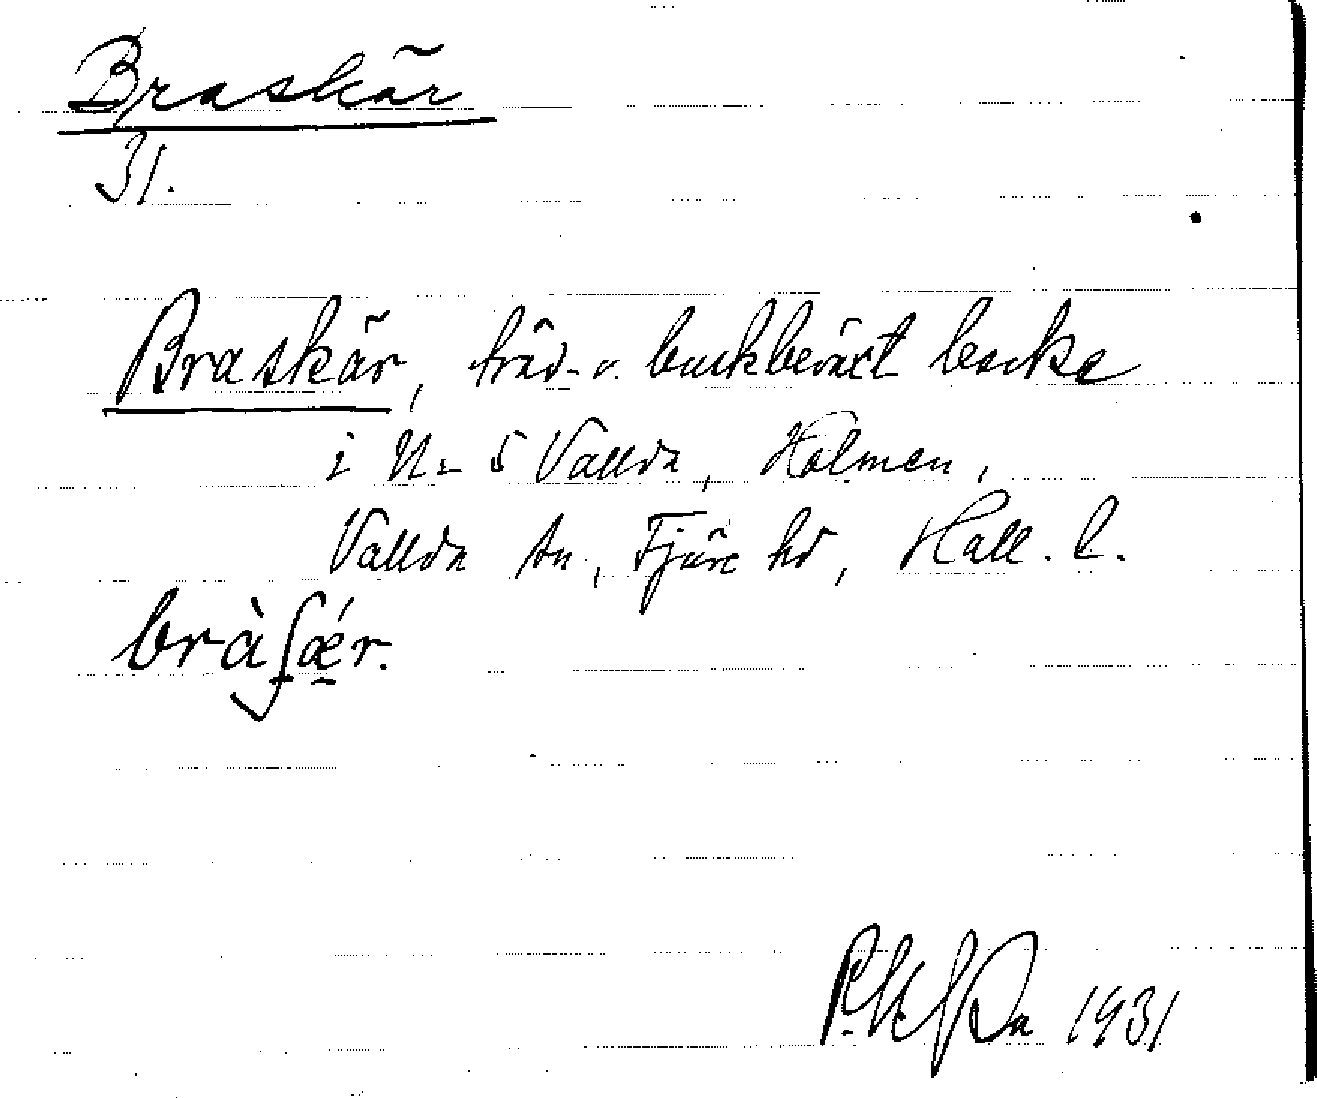 Braskär
31.
Braskär, träd- o. buskbeväxt backe
i Nr 5 Vallda, Holmen,
Vallda sn, Fjäre hd, Hall. l.
1931